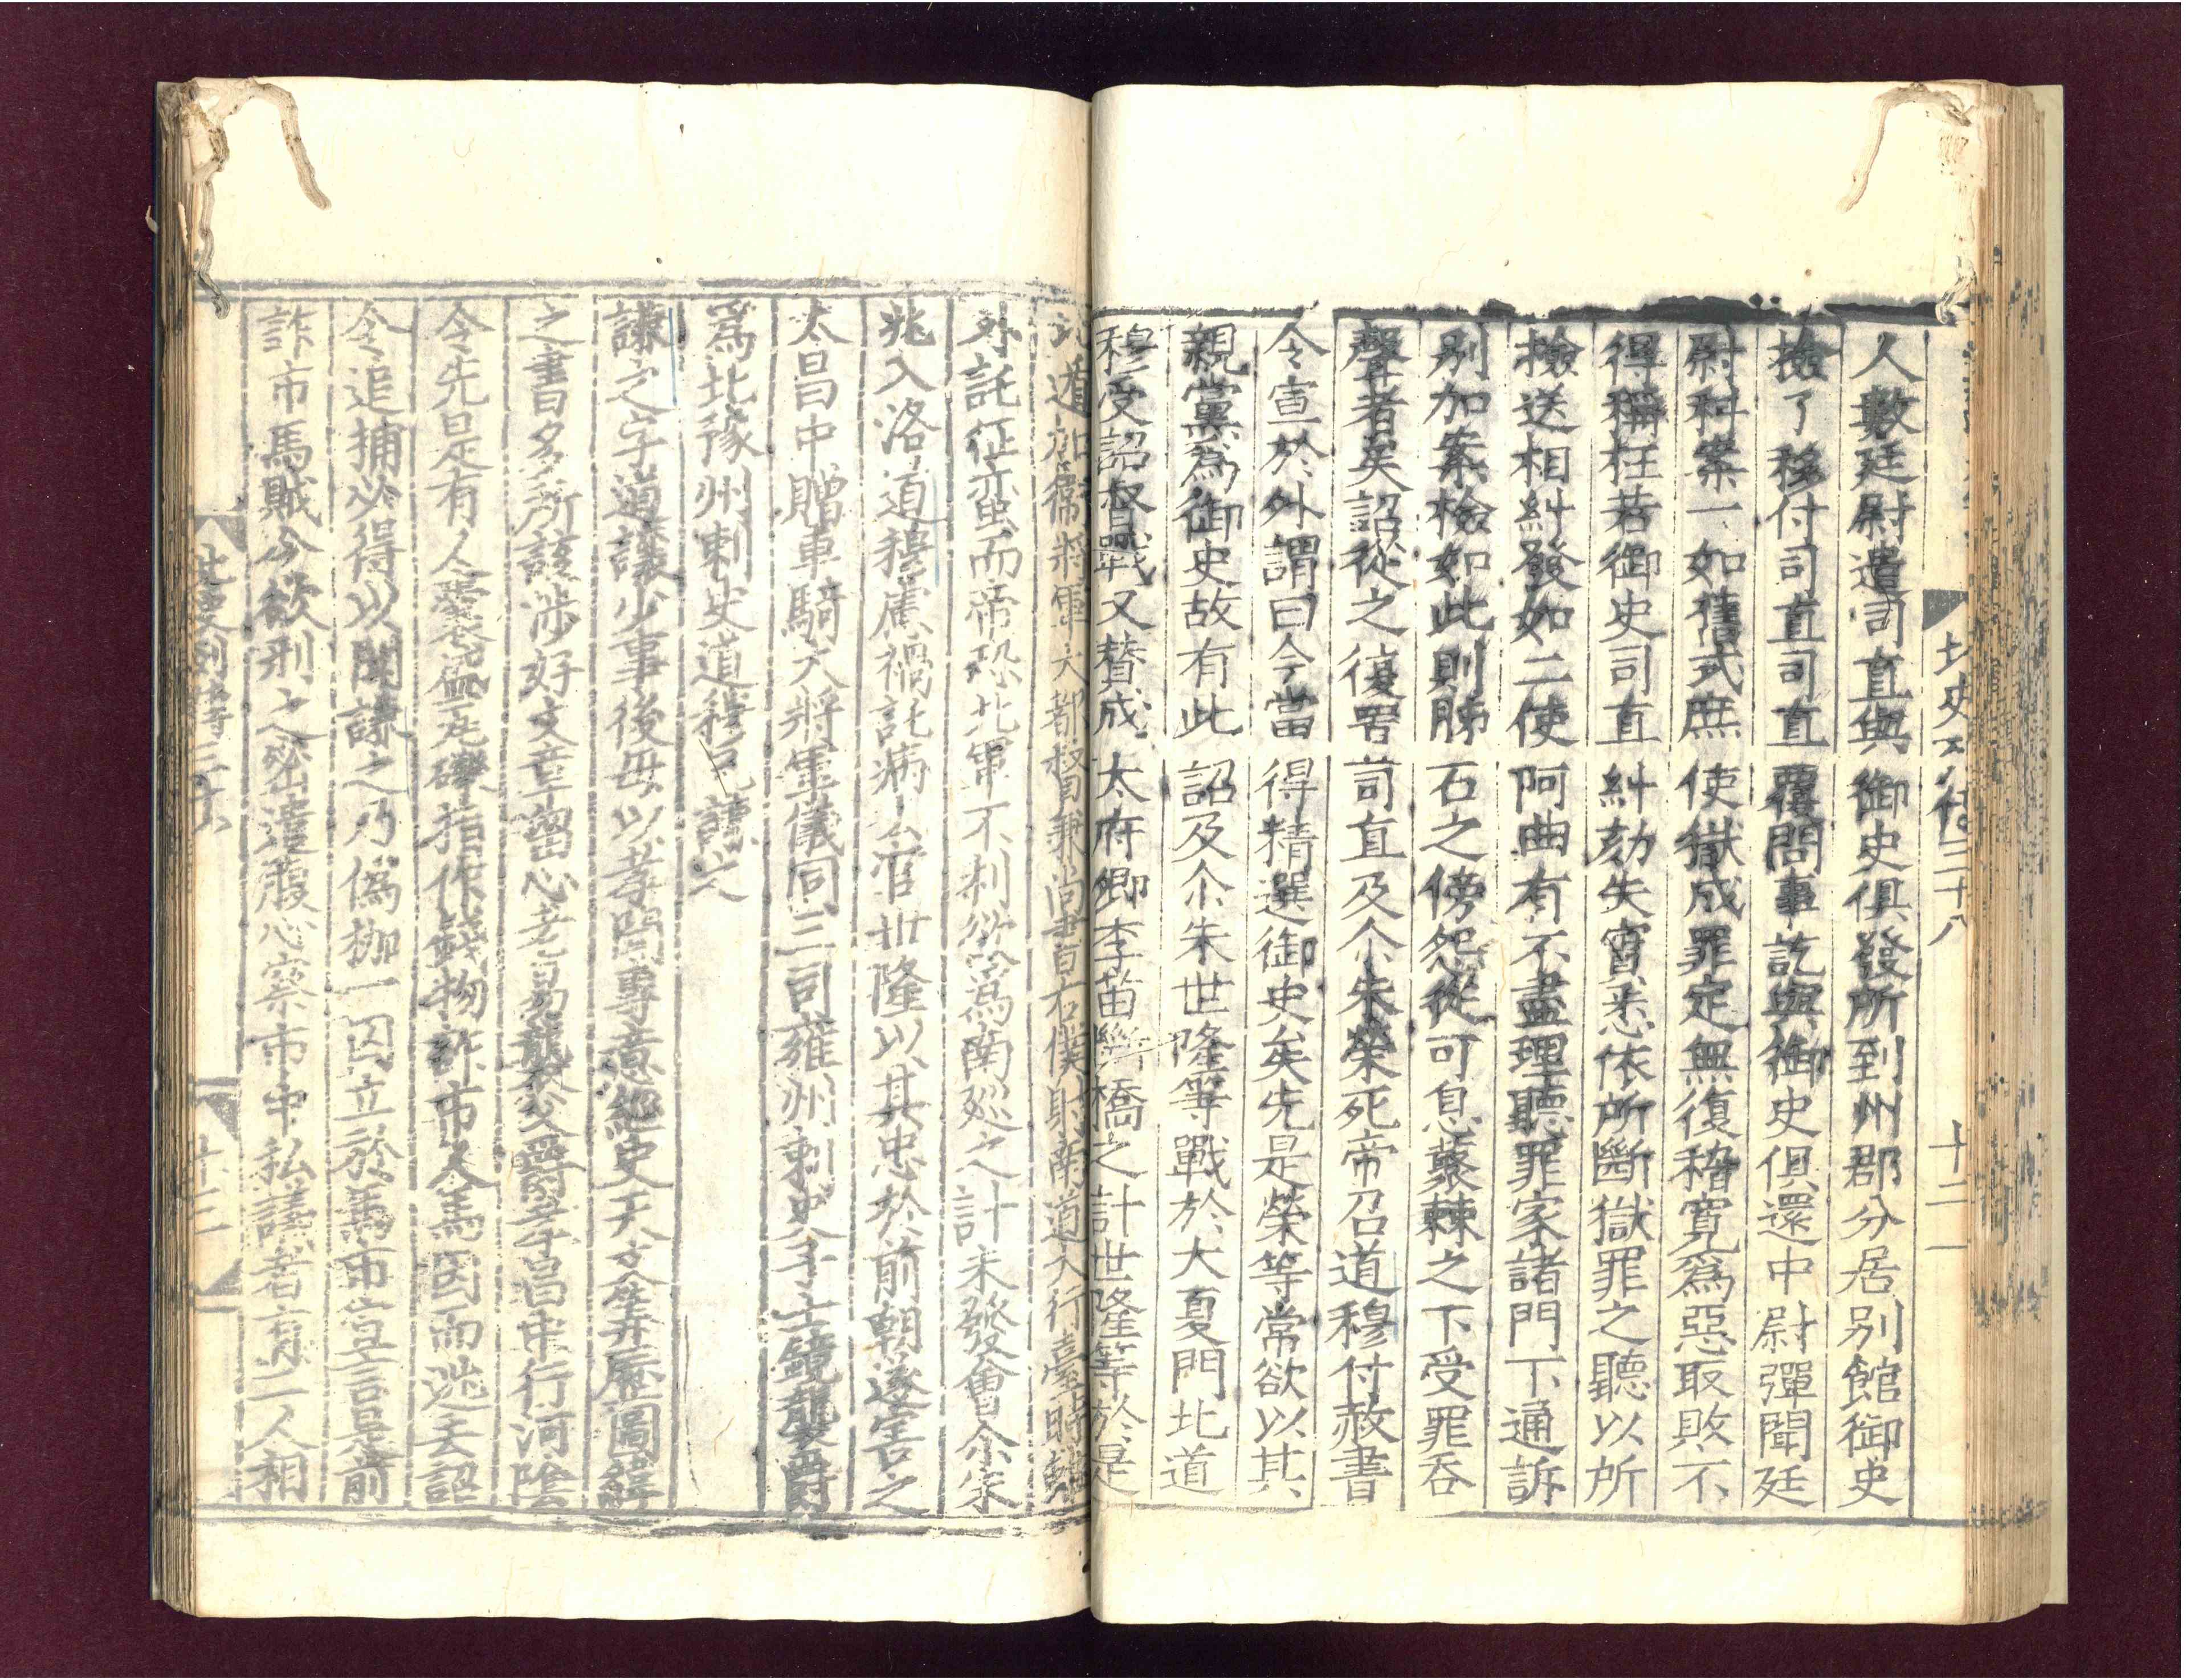 北史列傳三十八
十二
人數廷尉遣司直與御史俱發所到州郡分居別館御史
檢了移付司直司直覆問事訖與御史俱還中尉彈聞廷
尉科案一如舊式庶使獄成罪定無復稽寬爲惡取敗不
得稱枉若御史司直糾劾失實悉依所斷獄罪之聽以所
檢送相糾發如二使阿曲有不盡理聽罪家諸門下通訴
別加案檢如此則肺石之傍怨從可息藂棘之下受罪吞
聲者矣詔從之復置司直及尒朱榮死帝召道穆付赦書
令宣於外謂曰今當得精選御史矣先是榮等常欲以其
親黨爲御史故有此詔及尒朱世隆等戰於大夏門北道
穆受詔督戰又賛成太府卿李苗斷橋之計世隆等於是
道加衞將軍大都督兼尚書右僕射南道大行臺時
外託征蛮而帝恐北軍不利欲爲南巡之計未發會尒朱
兆入洛道穆慮禍託病去官世隆以其忠於前朝遂害之
太昌中贈車騎大將軍儀同三司雍州刺史子士鏡襲爵
爲北豫州刺史道穆兄謙之
謙之字道讓少事後母以孝聞專意經史天文筭歷圖緯
之書多所該渉好文章留心老易襲父爵孝昌中行河陰
令先是有人囊盛瓦礫指作錢物詐市人馬因而逃去詔
令追捕必得以聞謙之乃僞枷一囚立於馬市宣言是前
詐市馬賊今欲刑之密遣腹心察市中私議者有二人相
北史列傳三十八
十三